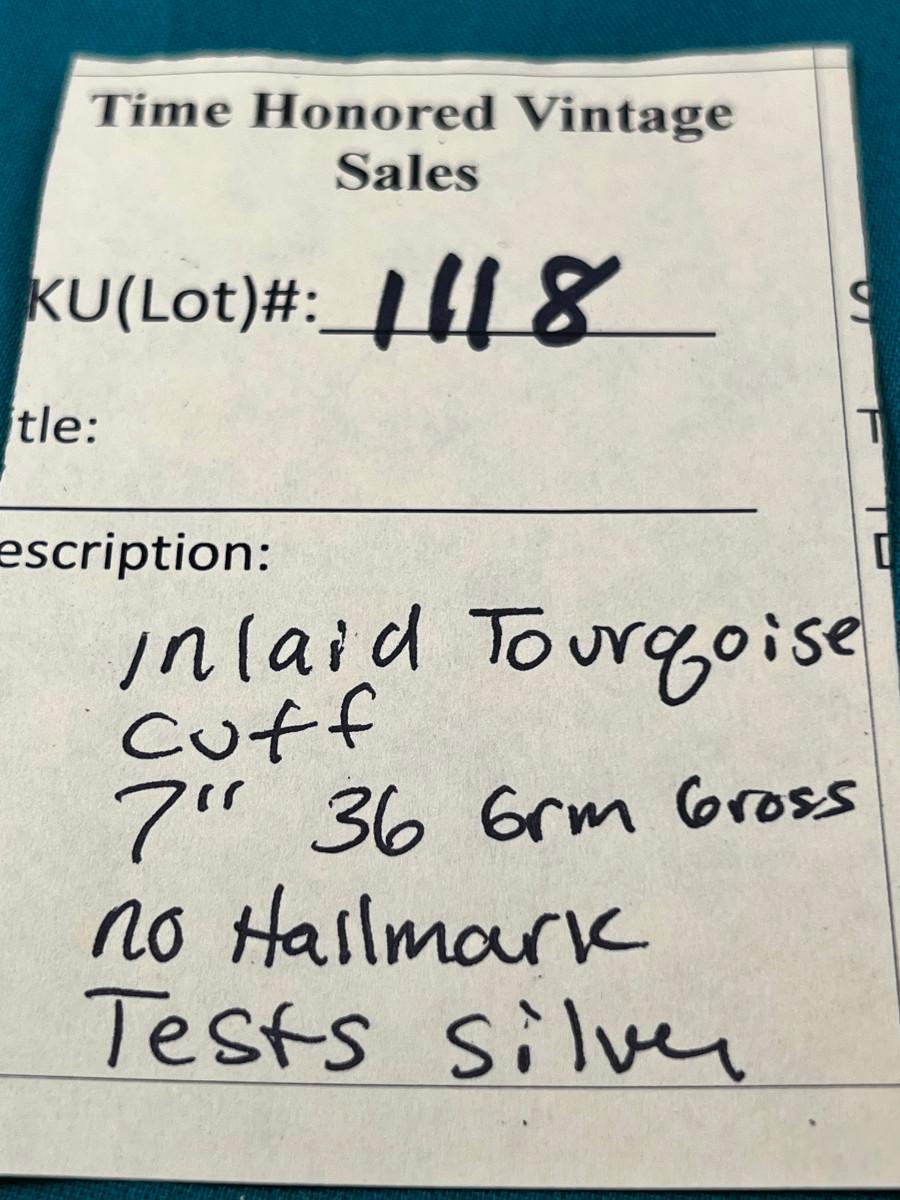 Time Honored Vintage
Sales
KU(Lot)#: 1118
S
tle:
T
escription:
D
Inlaid Tourqoise
cuff
7" 36 Grm Gross
no Hallmark
Tests silver